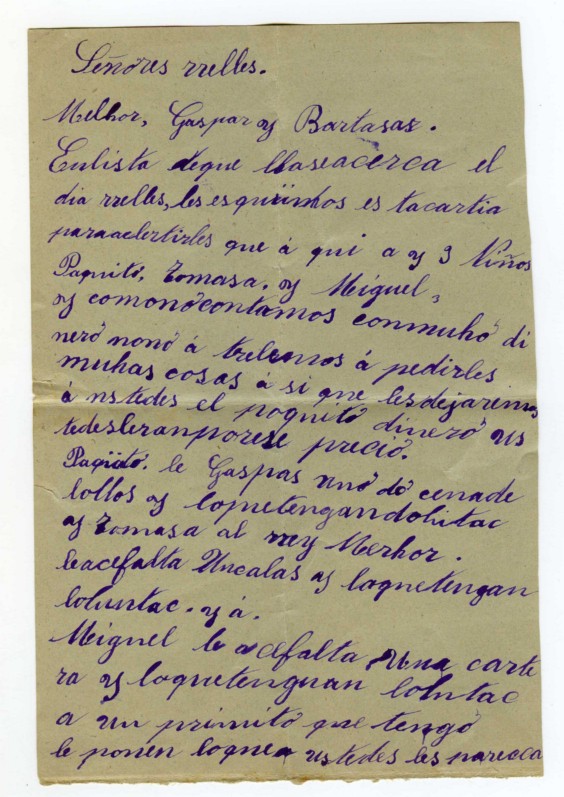 Señores rrelles.
Melhor, Gaspar y Bartasar.
Enlista deque llaseacerca el
dia rrelles, les esqriimhos es tacartia
paraaclertirles que á qui a y 3 Niños
Paquito, Tomasa. y Miguel,
y comonócontamos conmuhó di
neró nonó á trelemos á pedirles
muhas cosas á si que lesdejaremos
á ustedes el poquetó dineró us
tedesleranporese preció.
Paqüitó. le Gaspas unó dó cenade
lollos y loquetengandoluntac
y Tomasa al rrey Merhor.
leacefalta Uncalas y loquetengan
loluntac. y á.
Miguel le acefalta Una carte
ra y loquetenguan loluntac
a un primitó que tengó
le ponen loquea ustedes les pareaca